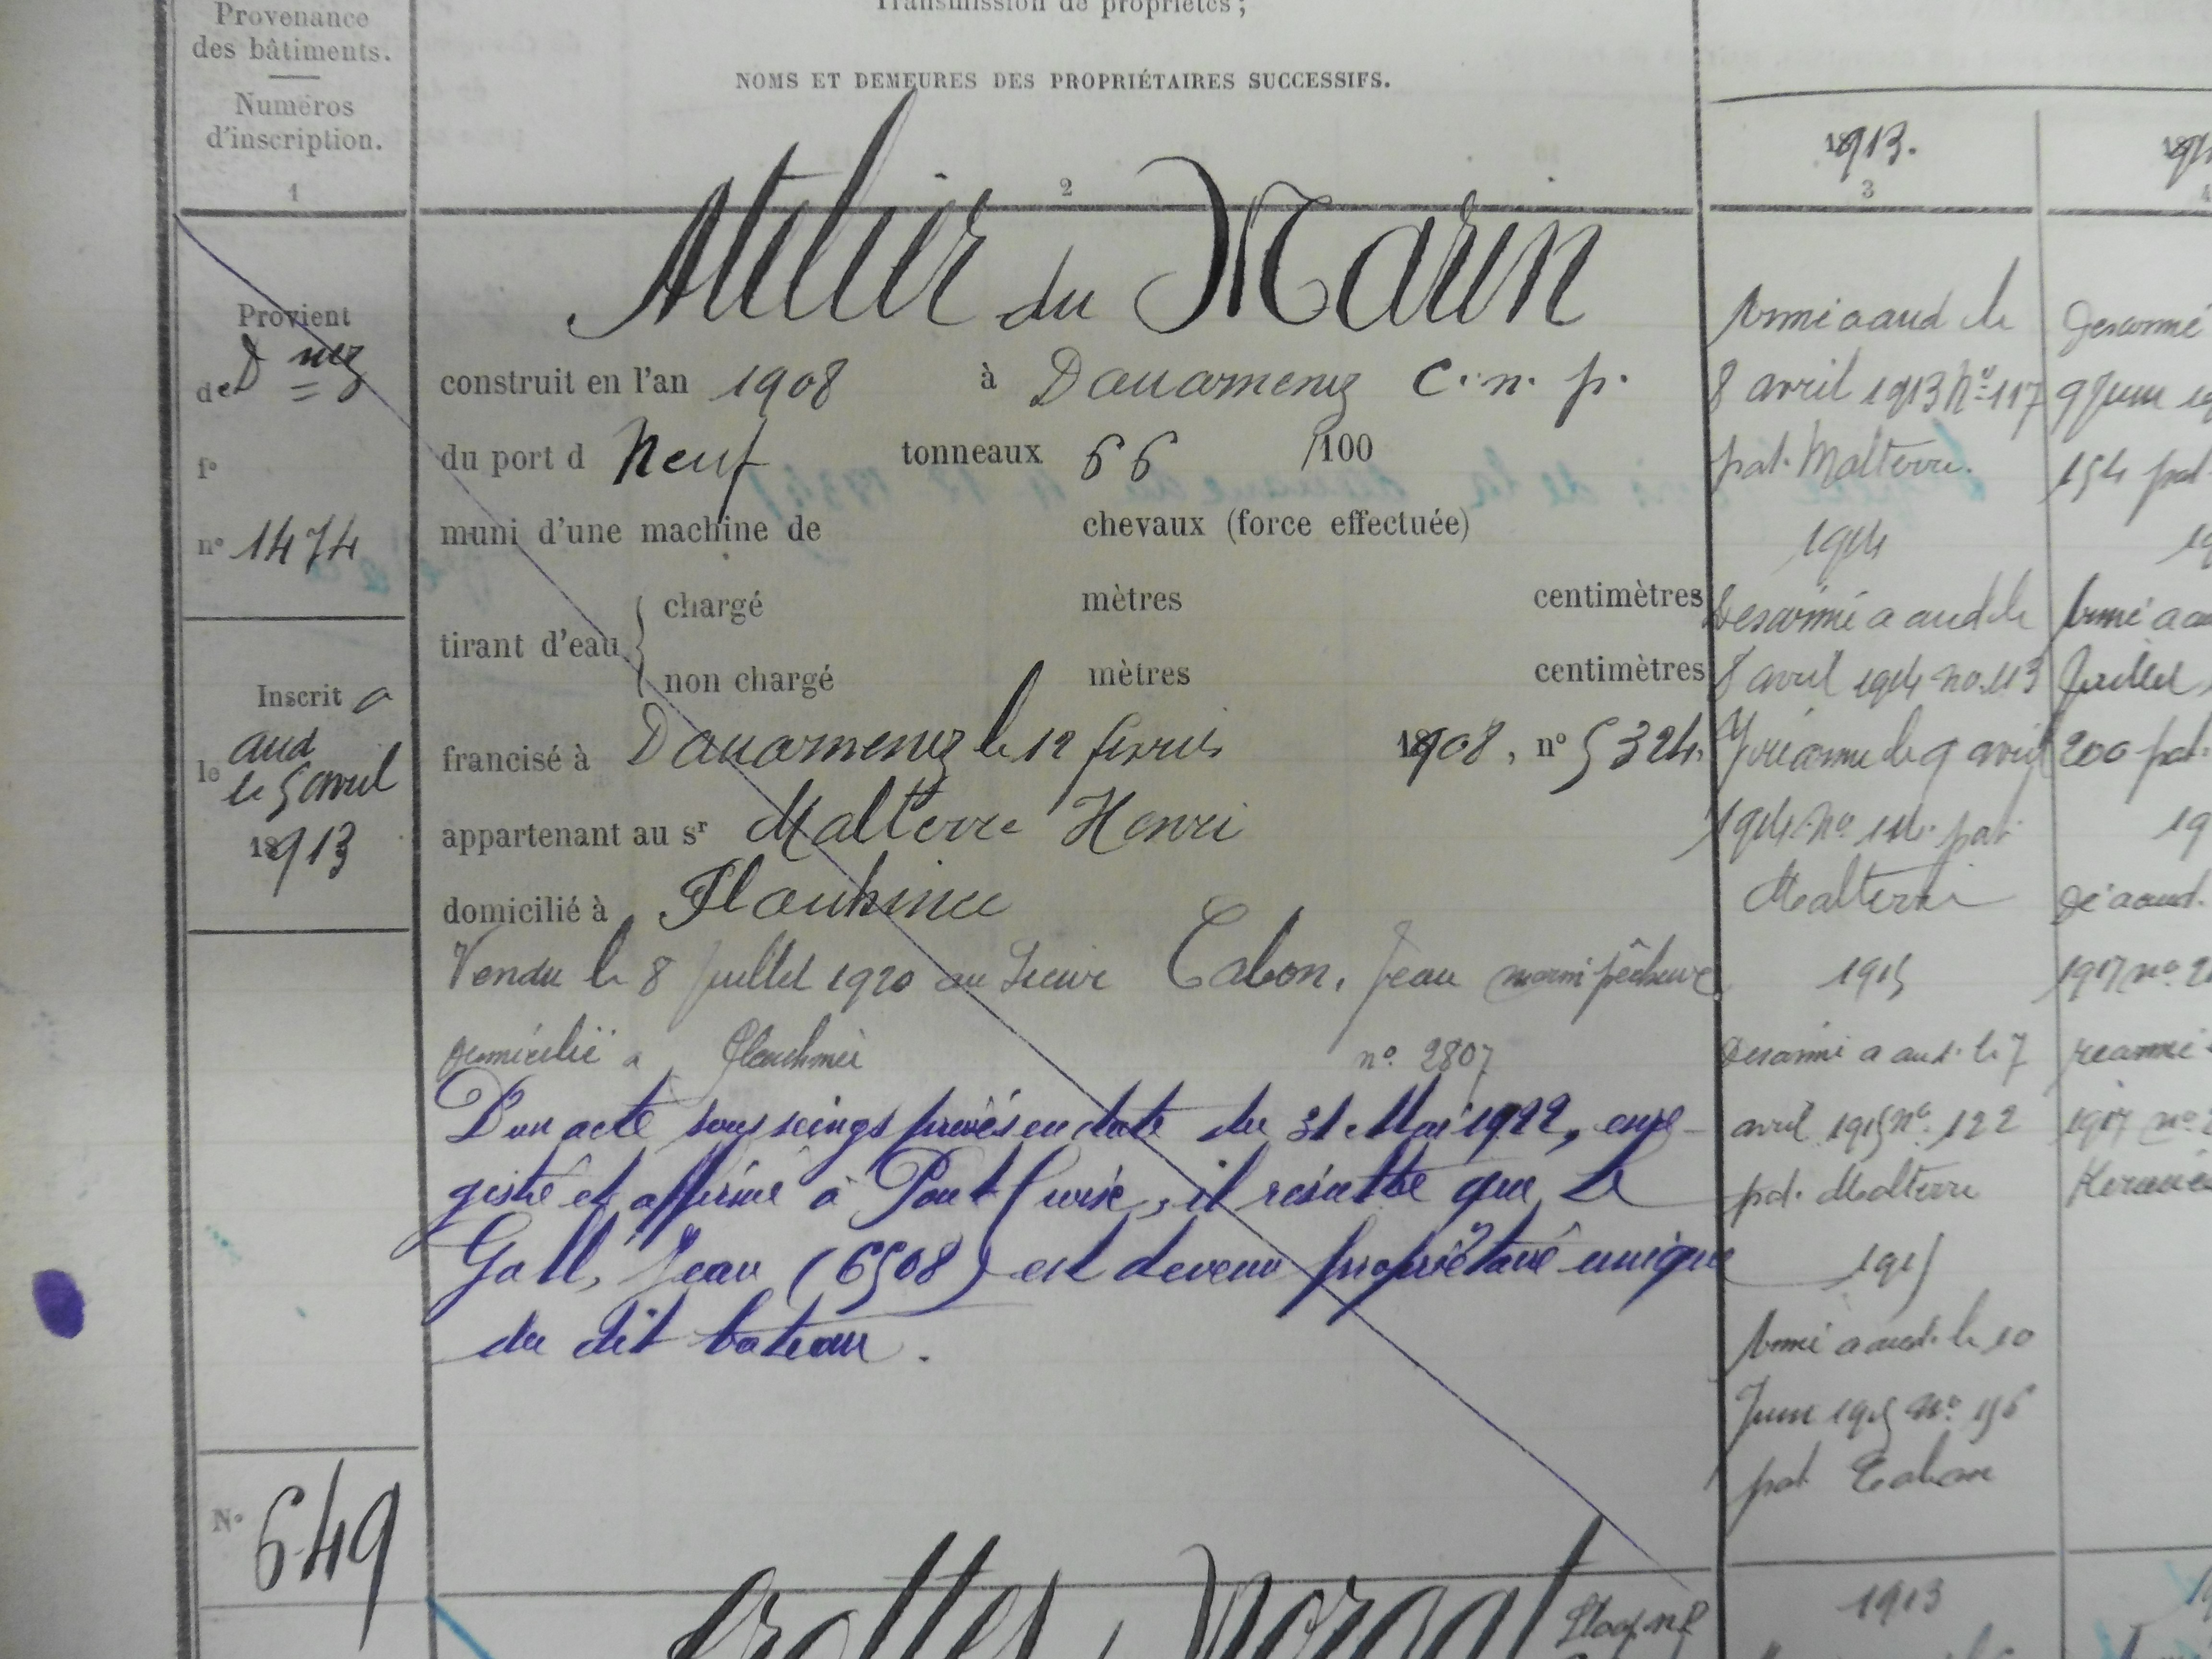 Provenance
des bâtiments.
Numéros
d'inscription.
1
Transmission de propriétés;
NOMS ET DEMEURES DES PROPRIÉTAIRES SUCCESSIFS.
2
Provient
de D nez
f°
n° 1474
Inscrit a
le aud
le 5 avril
1913
N° 649
Atelier du Marin
construit en l'an 1908 à Douarnenez C. n. p.
du port d Neuf tonneaux 66 /100
muni d'une machine de chevaux (force effectuée)
tirant d'eau
chargé mètres centimètres
non chargé mètres centimètres
francisé à Douarnenez le 12 1908, n° 5324.
appartenant au sr Malterre Henri
domicilié à Plouhinec
Vendu le 8 Juillet 1920 au Sieur Cabon, Jean marin pêcheur
domicilié a n° 2807
D'un acte sous seings privés en date du 31 Mai 1922, enre-
gistré et affirmé à Pont Croix, il résulte que Le
Gall, Jean (6508) est devenu propriétaire unique
du dit bateau.
1913.
3
Armé a aud le
8 avril 1913 N° 117
pat. Malterre.
1914
Desarmé a aud le
8 avril 1914 no. 113
réarmé le 9 avril
1914 No pat.
Malterre
1915
Desarmé a aud. le 7
avril 1915 n° 122
pat. Malterre
1915
Armé a aud. le 10
Juin 1915 N° 156
pat. Cabon
1913
4
Desarmé
9 Juin
154 pat.
Armé a
Juillet
200 pat.
19
Dé a aud.
1917 n°
rearmé
1917 n°
Grottes Morgat